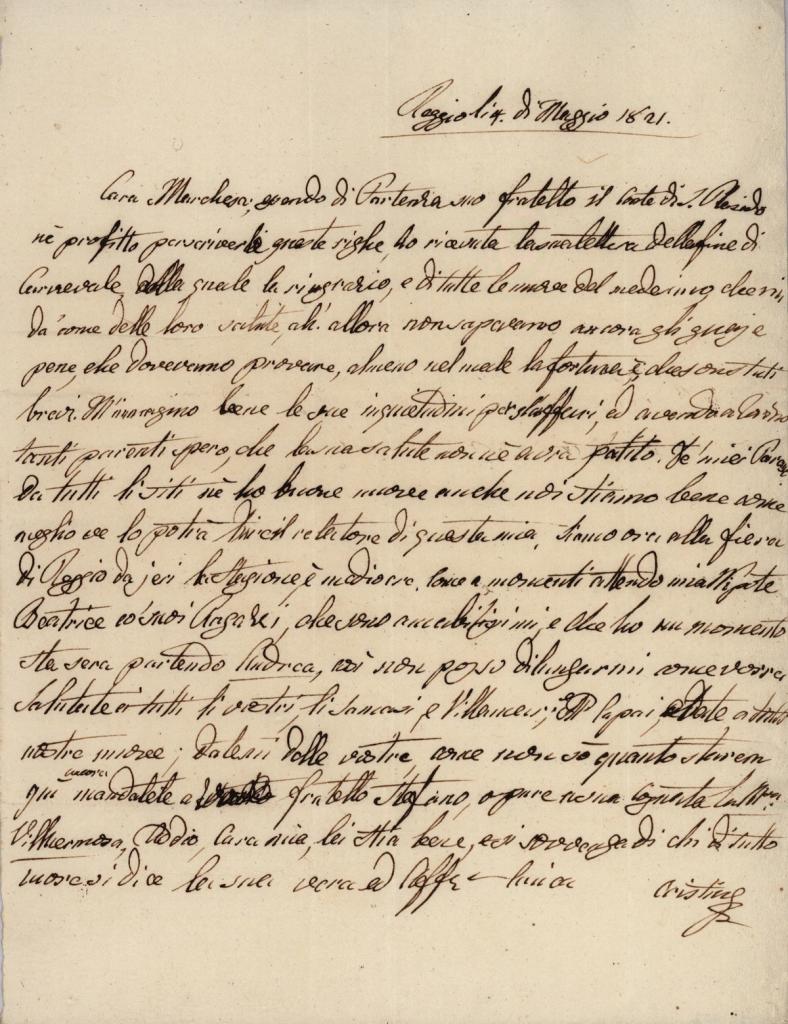 Reggio li 4. di Maggio 1821.
Cara Marchesa, essendo di Partenza suo fratello il Conte di S. Placido
nè profitto per scriverli queste righe, ho ricevuta la sua lettera della fine di
Carnevale, della quale la ringrazio, e di tutte le nuove del medesimo che mi
dà come delle loro salute, ah! allora non sapevamo ancora gli guaj e
pene, che dovevamo provare, almeno nel male la fortuna è, che sono tutti
bravi. M'immagino bene le sue inquietudini per ed avendo a
tanti parenti spero, che la sua salute non nè avrà patito. De' miei
da tutti li siti nè ho buone nuove anche noi stiamo bene come
meglio ve lo potrà dire il relatore di questa mia, siamo ora alla fiera
di Reggio da jeri la stagione, è mediocre, come a momenti attendo mia
Beatrice co' suoi che sono amabilissimi, e che ho un momento
sta sera partendo Andrea, così non posso dilungarmi come vorrei
salutate a tutti li vostri, li e Villamena, e date a tutti
nostre nuove; datemi delle vostre, come non sò quanto staremo
quì ancora mandatele a fratello Stefano, o pure a sua Cognata la
Villhermosa, Addio, Cara mia, lei stia bene, e si sovvenga di chi di tutto
cuore si dice la sua vera ed Aff. amica Cristina